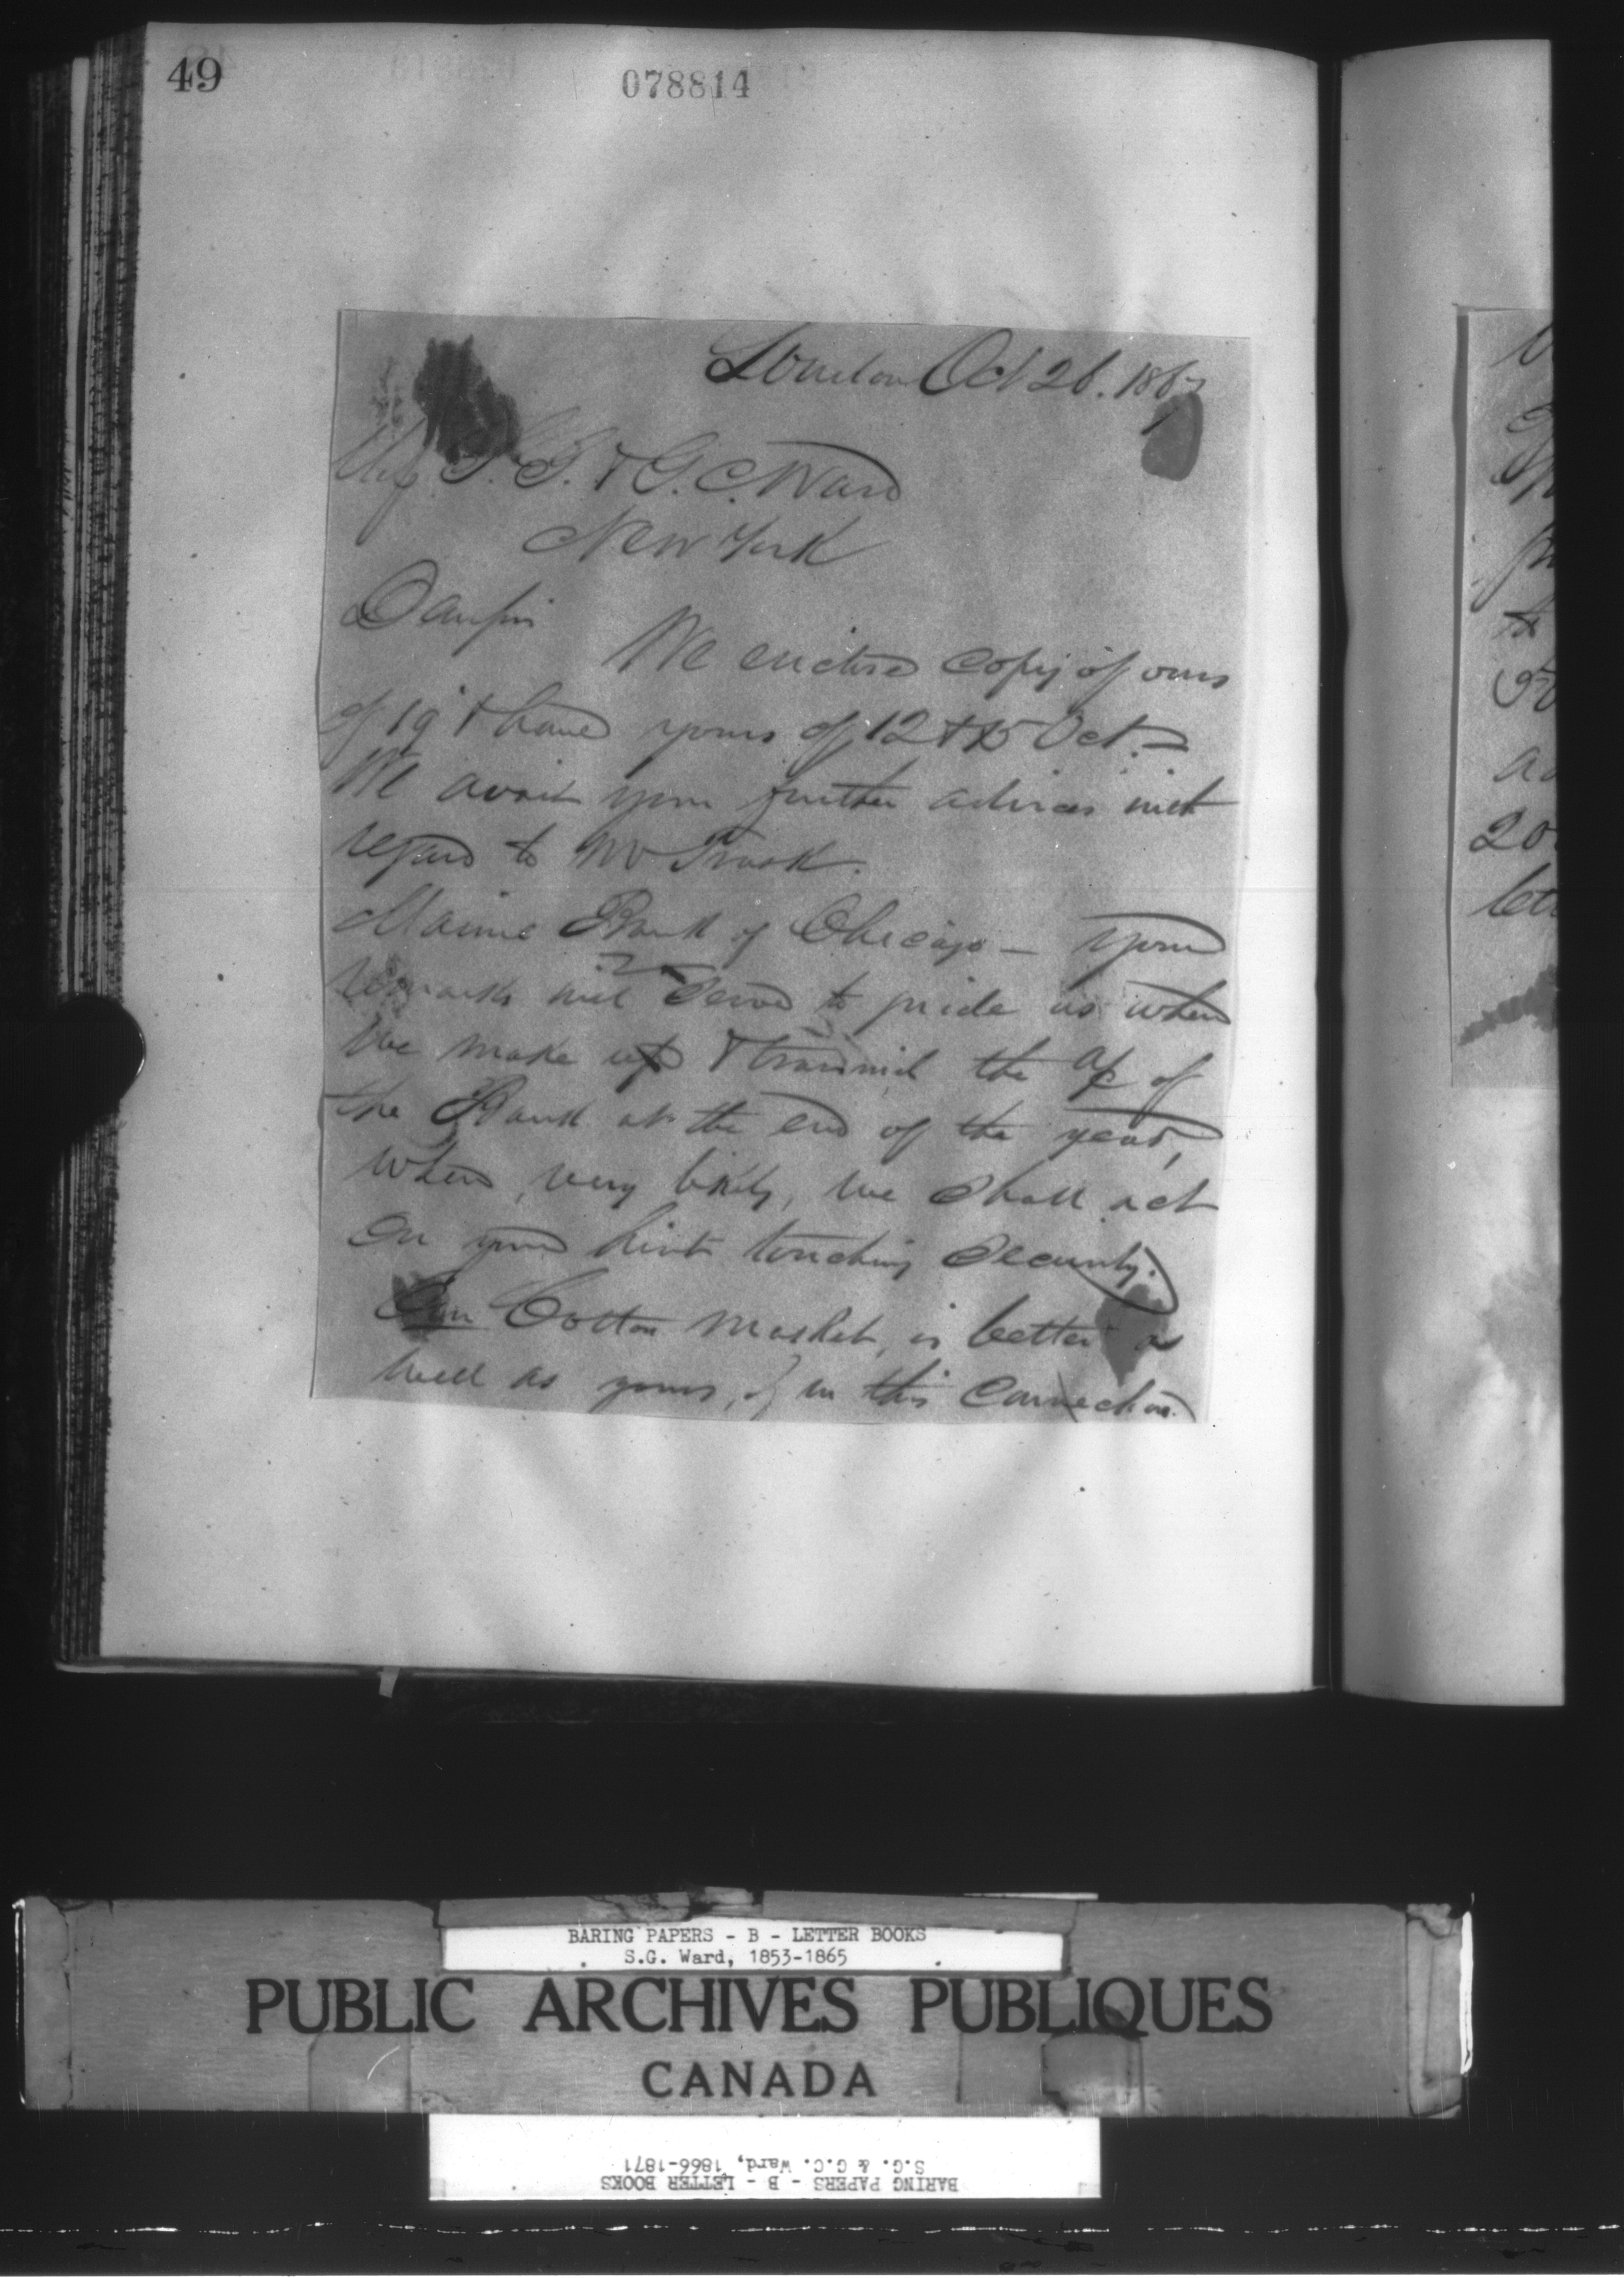 49
078814
London Oct 26. 1867
Mess. S. G. & G. C. Ward
New York
Dear Sirs
We enclose copy of ours
of 19 & have yours of 12 & 15 Oct.
We await your further advices with
regard to Mr Trask.
Marine Bank of Chicago — Your
remarks will serve to guide us when
we make up & transmit the a/c of
the Bank at the end of the year,
when, very likely, we shall act
on your hint touching security.
Our Cotton market, is better as
well as yours, & in this connection
20
BARING PAPERS - B - LETTER BOOKS
S.G. Ward, 1853-1865
PUBLIC ARCHIVES PUBLIQUES
CANADA
BARING PAPERS - B - LETTER BOOKS
S.G. & G.C. Ward, 1866-1871